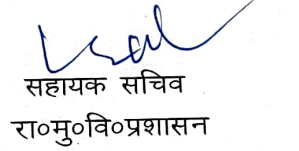 सहायक सचिव
रा०मु०वि०प्रशासन